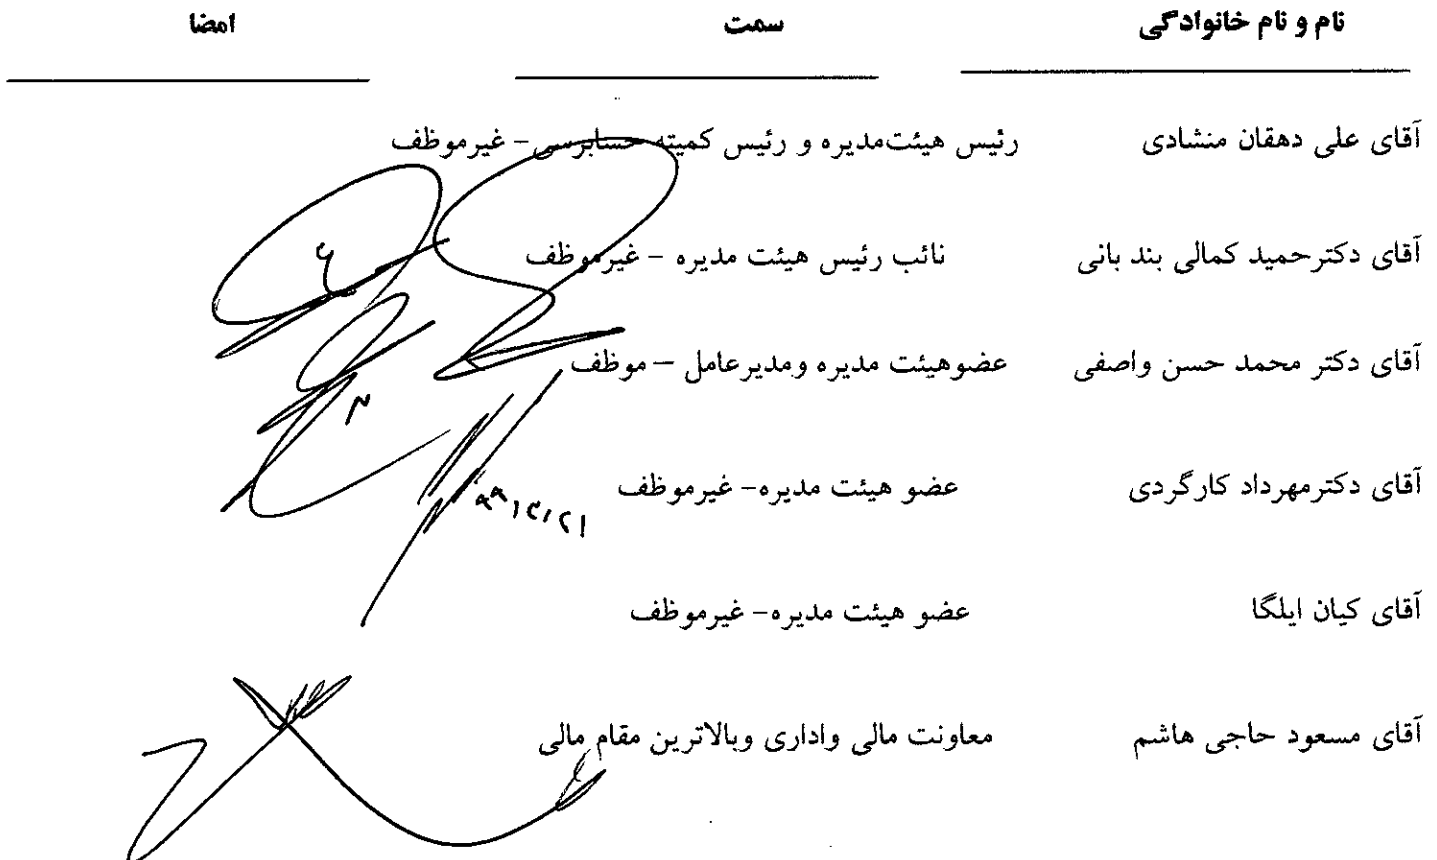 نام و نام خانوادگی سمت امضا
آقای علی دهقان منشادی رئیس هیئت‌مدیره و رئیس کمیته حسابرسی- غیرموظف
آقای دکترحمید کمالی بند بانی نائب رئیس هیئت مدیره - غیرموظف
آقای دکتر محمد حسن واصفی عضوهیئت مدیره ومدیرعامل – موظف
آقای دکترمهرداد کارگردی عضو هیئت مدیره- غیرموظف
آقای کیان ایلگا عضو هیئت مدیره- غیرموظف
آقای مسعود حاجی هاشم معاونت مالی واداری وبالاترین مقام مالی